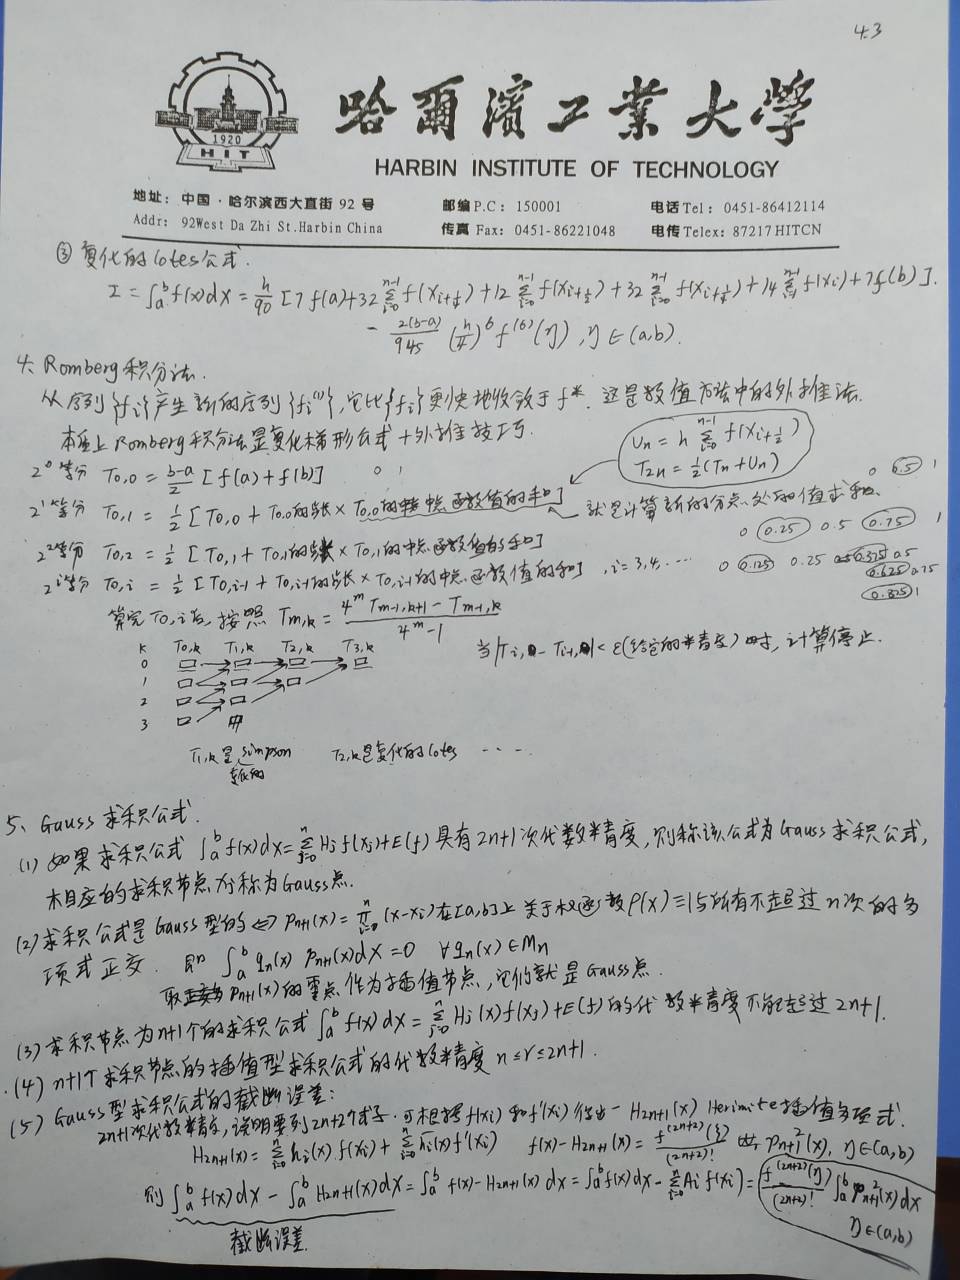 4.3
1920
HIT
哈爾濱工業大學
HARBIN INSTITUTE OF TECHNOLOGY
地址：中国·哈尔滨西大直街 92 号 邮编 P.C：150001 电话 Tel：0451-86412114
Addr：92West Da Zhi St.Harbin China 传真 Fax：0451-86221048 电传 Telex：87217 HITCN
③ 复化的 Cotes公式.
I = ∫_a^b f(x)dx = h/90 [7f(a)+32 Σ_{i=0}^{n-1} f(x_{i+1/4}) +12 Σ_{i=0}^{n-1} f(x_{i+1/2}) +32 Σ_{i=0}^{n-1} f(x_{i+3/4}) +14 Σ_{i=1}^{n-1} f(xi) +7f(b)].
- 2(b-a)/945 (h/4)^6 f^(6)(η), η∈(a,b).
4、Romberg 积分法.
从序列{fi}产生新的序列{fi^(1)}, 它比{fi}更快地收敛于f*. 这是数值方法中的外推法.
本质上 Romberg积分法是复化梯形公式+外推技巧.
Un = h Σ_{i=0}^{n-1} f(x_{i+1/2})
T2n = 1/2(Tn+Un)
2^0等分 T0,0 = b-a/2 [f(a)+f(b)] 0 1
0 0.5 1
2^1等分 T0,1 = 1/2 [T0,0 + T0,0的步长 × T0,0的中点函数值的和] 就是计算新的分点处的值求和.
0 0.25 0.5 0.75 1
2^2等分 T0,2 = 1/2 [T0,1 + T0,1的步长 × T0,1的中点函数值的和]
2^i等分 T0,i = 1/2 [T0,i-1 + T0,i-1的步长 × T0,i-1的中点函数值的和], i=3,4,…
0 0.125 0.25 0.375 0.5
0.625 0.75
0.875 1
算完T0,i后, 按照 Tm,k = 4^m Tm-1,k+1 - Tm-1,k / 4^m -1
当|Ti,0 - Ti-1,0|<ε(给定的精度)时, 计算停止.
K T0,k T1,k T2,k T3,k
0
1
2
3
T1,k是复化的simpson T2,k是复化的Cotes ….
5、Gauss 求积公式.
(1) 如果求积公式 ∫_a^b f(x)dx = Σ_{j=0}^n Hj f(xj)+E(f) 具有2n+1次代数精度, 则称该公式为Gauss求积公式,
相应的求积节点xj称为Gauss点.
(2) 求积公式是Gauss型的 ⇔ Pn+1(x) = π_{i=0}^n (x-xi) 在[a,b]上关于权函数ρ(x)≡1与所有不超过n次的多
项式正交. 即 ∫_a^b qn(x) Pn+1(x)dx = 0 ∀qn(x)∈Mn
取 Pn+1(x)的零点作为插值节点, 它们就是Gauss点.
(3) 求积节点为n+1个的求积公式 ∫_a^b f(x)dx = Σ_{j=0}^n Hj(x)f(xj)+E(f) 的代数精度不能超过2n+1.
(4) n+1个求积节点的插值型求积公式的代数精度 n≤r≤2n+1.
(5) Gauss型求积公式的截断误差:
2n+1次代数精度, 说明要列2n+2个式子. 可根据f(xi)和f'(xi)作出一H2n+1(x) Herimite插值多项式.
H2n+1(x) = Σ_{i=0}^n hi(x)f(xi) + Σ_{i=0}^n h̄i(x)f'(xi) f(x)-H2n+1(x) = f^(2n+2)(ξ)/(2n+2)! P²n+1(x), η∈(a,b)
则 ∫_a^b f(x)dx - ∫_a^b H2n+1(x)dx = ∫_a^b f(x)-H2n+1(x) dx = ∫_a^b f(x)dx - Σ_{i=0}^n Ai f(xi) = f^(2n+2)(η)/(2n+2)! ∫_a^b P²n+1(x)dx
η∈(a,b)
截断误差.